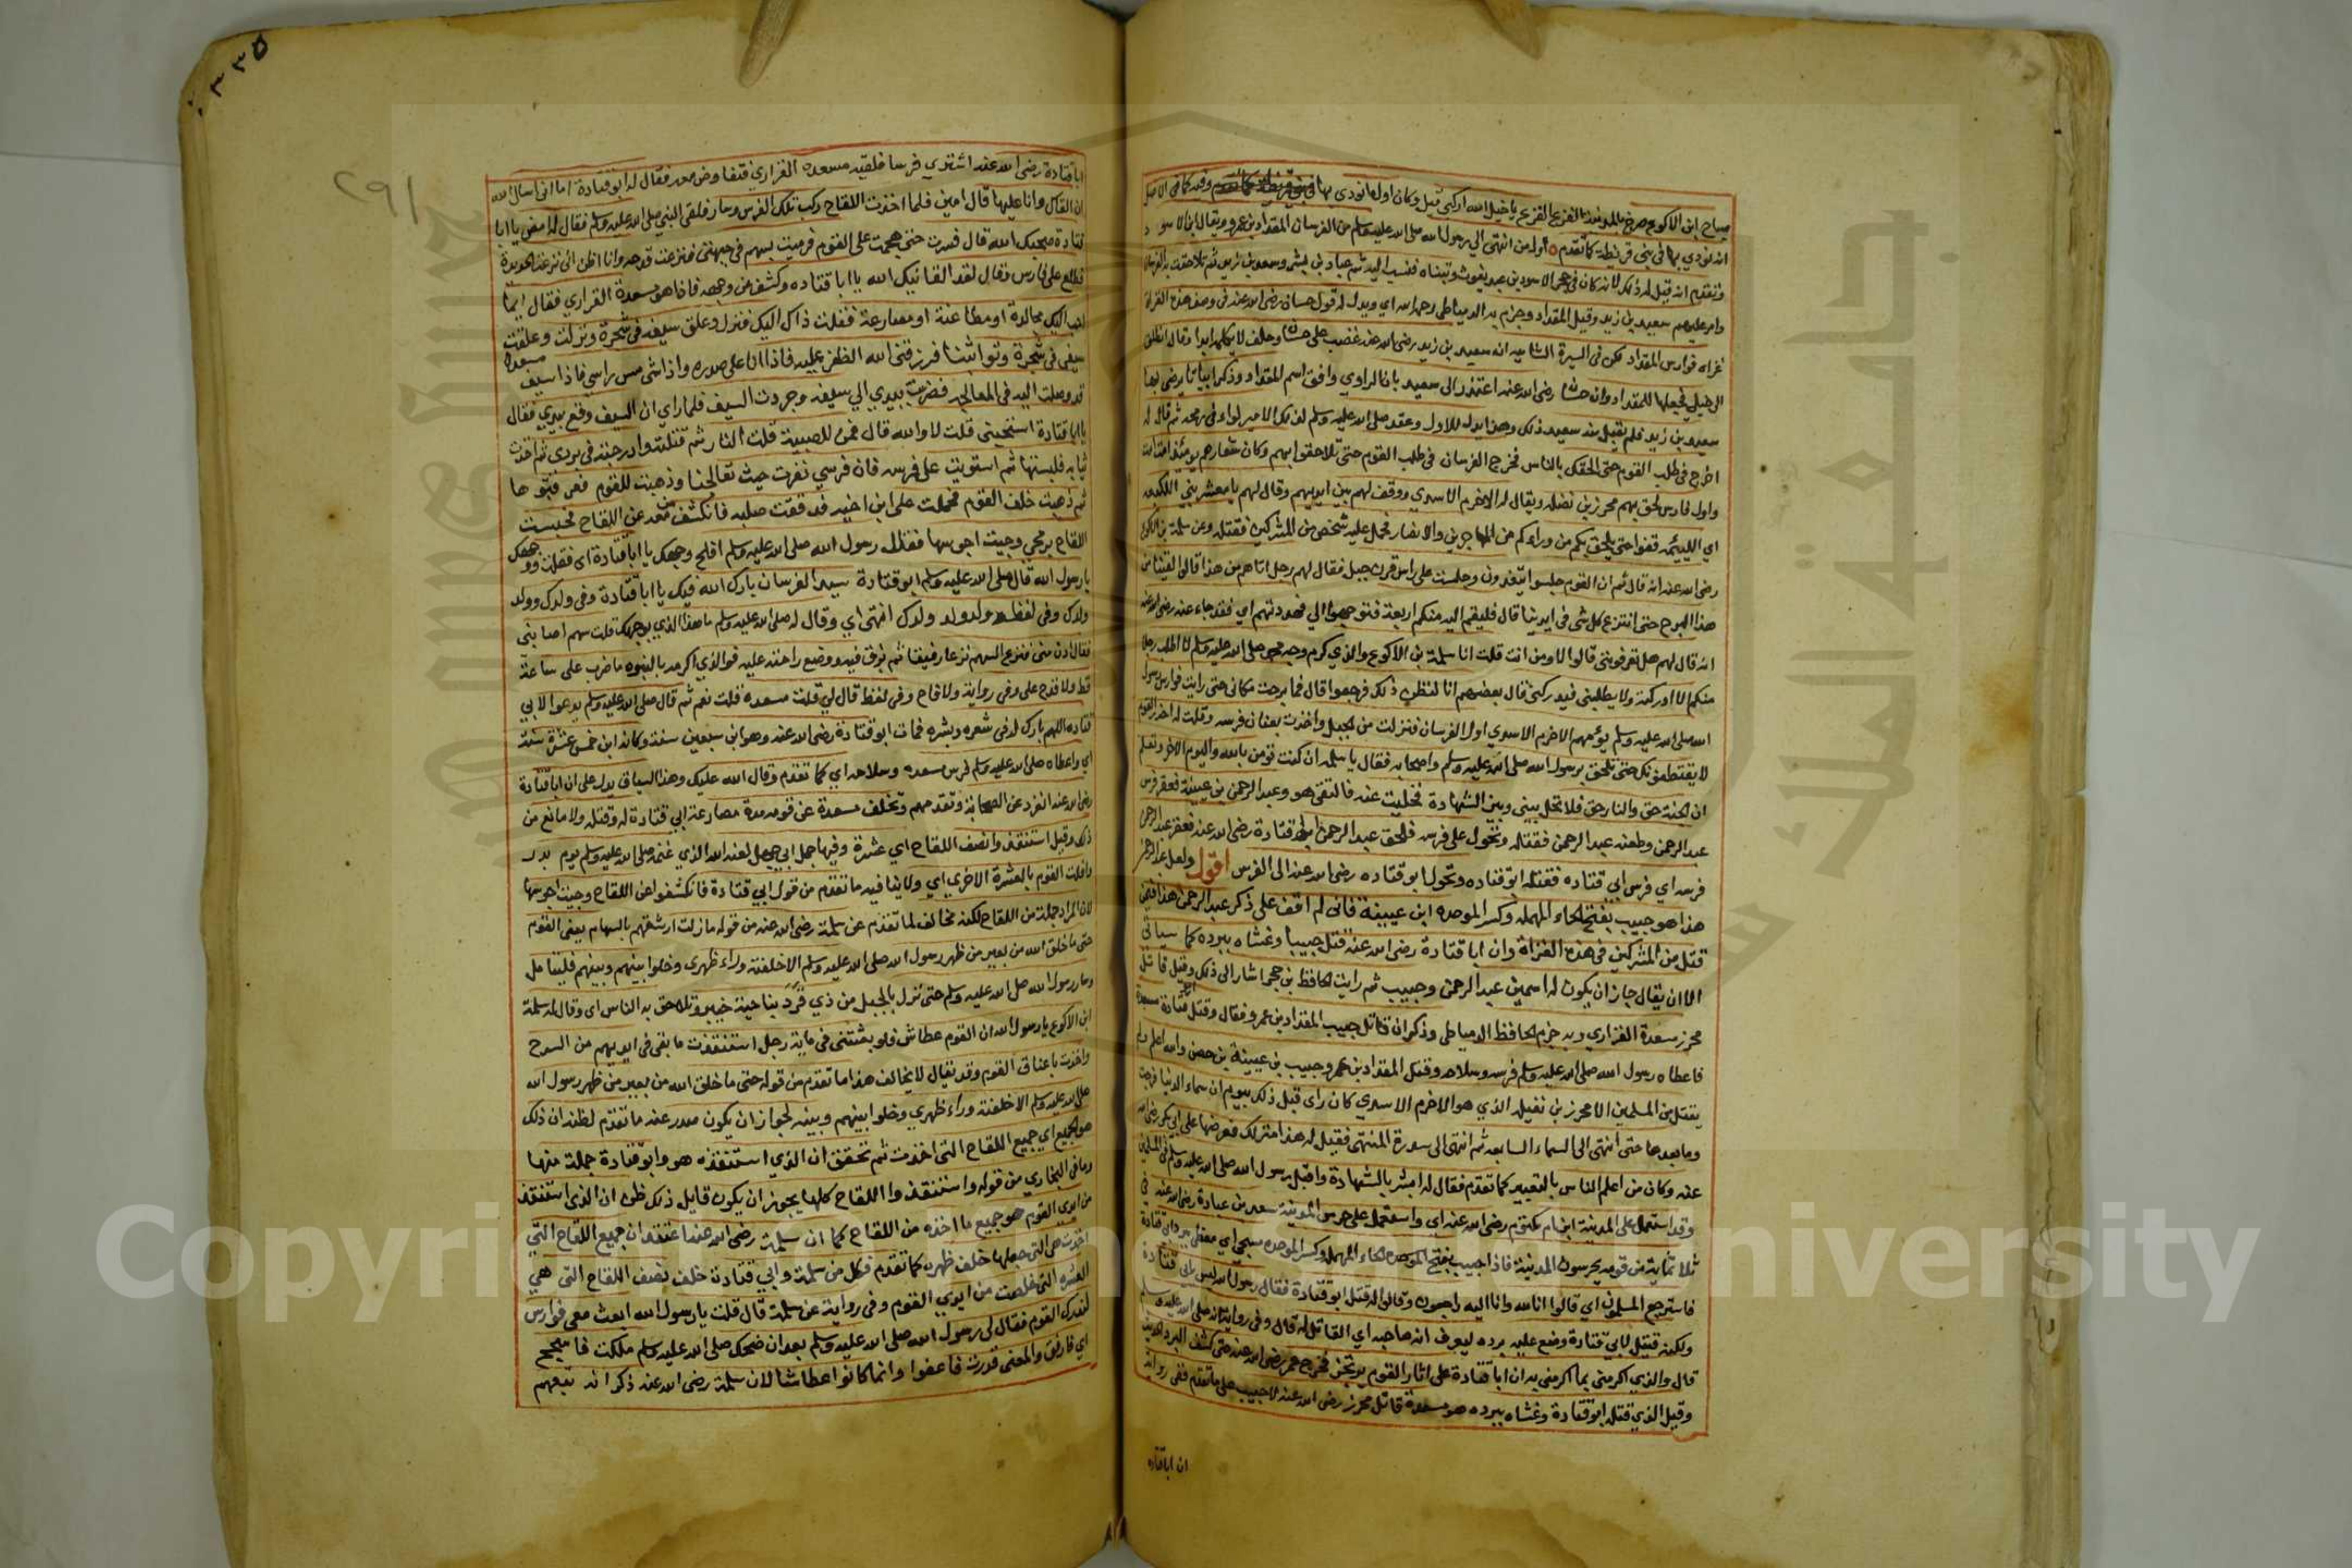 صياح ابن الاكوع صرخ بالمدينة الفزع الفزع يا خيل الله اركبي قيل وكان اول ما نودي بها وفيه كما في الاصل
انه نودي بها في بني قريظة كما تقدم واول من انتهى الي رسول الله صلى الله عليه وسلم من الفرسان المقداد بن عمرو ويقال ابن الاسود
وتقدم انه قيل له ذلك لانه كان في حجر الاسود بن عبد يغوث وتبناه فنسب اليه ثم عباد بن بشر وسعد بن زيد ثم تلاحقت به الفرسان
وامر عليهم سعيد بن زيد وقيل المقداد وجزم به الدمياطي رحمه الله اي ويدل له قول حسان رضى الله عنه في وصف هذه الغزاة
غزاه فوارس المقداد لكن في السيرة الشاميه ان سعيد بن زيد رضى الله عنه غضب على حسان وحلف لا يكلمه ابدا وقال انطلق
الى خيلي فجعلها للمقداد وان حسان رضى الله عنه اعتذر الى سعيد بان الراوي وافق اسم المقداد وذكر ابياتا يرضى بها
سعيد بن زيد فلم يقبل منه سعيد ذلك وهذا يدل للاول وعقد صلى الله عليه وسلم لذلك الامير لواء في رمحه ثم قال له
اخرج في طلب القوم حتى الحقك بالناس فخرج الفرسان في طلب القوم حتى تلاحقوا بهم وكان شعارهم يومئذ امت امت
واول فارس لحق بهم محرز بن نضله ويقال له الاخرم الاسدي ووقف لهم بين ايديهم وقال لهم يا معشر بني اللكيعه
اي اللئيمه قفوا حتى يلحق بكم من وراءكم من المهاجرين والانصار فحمل عليه شخص من المشركين فقتله وعن سلمة بن الاكوع
رضى الله عنه انه قال ثم ان القوم جلسوا يتغدون وجلست على راس قرن جبل فقال لهم رجل اتاهم من هذا قالوا لقينا من
هذا البرح حتى انتزع كل شى في ايدينا قال فليقم اليه منكم اربعة فتوجهوا الي فهددتهم اي فقد جاء عنه رضى الله عنه
انه قال لهم هل تعرفوني قالوا لا ومن انت قلت انا سلمة بن الاكوع والذي كرم وجه محمد صلى الله عليه وسلم لا اطلب رجلا
منكم الا ادركته ولا يطلبني فيدركني قال بعضهم انا لنظن ذلك فرجعوا قال فما برحت مكاني حتى رايت فوارس رسول
الله صلى الله عليه وسلم يؤمهم الاخرم الاسدي اول الفرسان فنزلت من الجبل واخذت بعنان فرسه وقلت له احذر القوم
لا يقتطعونك حتى تلحق برسول الله صلى الله عليه وسلم واصحابه فقال يا سلمه ان كنت تؤمن بالله واليوم الاخر وتعلم
ان الجنة حق والنار حق فلا تحل بيني وبين الشهادة فخليت عنه فالتقى هو وعبد الرحمن بن عيينة فعقر فرس
عبد الرحمن وطعنه عبد الرحمن فقتله وتحول على فرسه فلحق عبد الرحمن ابو قتادة رضى الله عنه فعقر عبد الرحمن
فرسه اي فرس ابي قتاده فقتله ابو قتاده وتحول ابو قتاده رضى الله عنه الى الفرس اقول ولعل عبد الرحمن
هذا هو حبيب بفتح الحاء المهمله وكسر الموحده ابن عيينة فاني لم اقف على ذكر عبد الرحمن هذا فيمن
قتل من المشركين في هذه الغزاة وان ابا قتادة رضى الله عنه قتل حبيبا وغشاه ببرده كما سياتي
الا ان يقال جاز ان يكون له اسمين عبد الرحمن وحبيب ثم رايت الحافظ بن حجر اشار الى ذلك وقيل قاتل
محرز مسعدة الفزاري وبه جزم الحافظ الدمياطي وذكر ان قاتل حبيب المقداد بن عمرو فقال وقتل ابو قتادة مسعدة
فاعطاه رسول الله صلى الله عليه وسلم فرسه وسلاحه وقتل المقداد بن عمرو حبيب بن عيينة بن حصن والله اعلم ولم
يقتل من المسلمين الا محرز بن نضله الذي هو الاخرم الاسدي كان راى قبل ذلك بيوم ان سماء الدنيا فرجت
وما بعدها حتى انتهى الى السماء السابعه ثم انتهى الى سدرة المنتهى فقيل له هذا منزلك فعرضها على ابي بكر رضى الله
عنه وكان من اعلم الناس بالتعبير كما تقدم فقال له ابشر بالشهادة واقبل رسول الله صلى الله عليه وسلم في المسلمين
وقد استعمل على المدينة ابن ام مكتوم رضى الله عنه اي واستعمل على حرس المدينة سعد بن عبادة رضى الله عنه في
ثلاثمائة من قومه يحرسون المدينة فاذا حبيب بفتح الحاء المهمله وكسر الموحده مسجى اي مغطى ببرد ابي قتادة
فاسترجع المسلمون اي قالوا انا لله وانا اليه راجعون وقالوا قتل ابو قتادة فقال رسول الله ليس بابي قتادة
ولكنه قتيل لابي قتادة وضع عليه برده ليعرف انه صاحبه اي القاتل له قال وفي رواية انه صلى الله عليه وسلم
قال والذي اكرمني بما اكرمني به ان ابا قتادة على اثار القوم يرتجز فخرج عمر رضى الله عنه حتى كشف البرد
وقيل الذي قتله ابو قتادة وغشاه ببرده هو مسعدة قاتل محرز رضى الله عنه لا حبيب على ما تقدم ففى رواية
ان ابا قتاده
٣٣٥
٢٩١
ابا قتادة رضى الله عنه اشتري فرسا فلقيه مسعده الفزاري فتفاوض معه فقال له ابو قتادة اما اني اسال الله
ان القاك وانا عليها قال امين فلما اخذت اللقاح ركب تلك الفرس وسار فلقى النبي صلى الله عليه وسلم فقال له امض يا ابا
قتادة صحبك الله قال فسرت حتى هجمت على القوم فرميت بسهم في جبهتي فنزعت قدحه وانا اظن اني نزعت الحديدة
فطلع على فارس وقال لقد القانيك الله يا ابا قتاده وكشف عن وجهه فاذا هو مسعدة الفزاري فقال ايما
احب اليك مجالدة او مطاعنة او مصارعة فقلت ذاك اليك فنزل وعلق سيفه في شجرة ونزلت وعلقت
سيفي في شجرة وتواثبنا فرزقني الله الظفر عليه فاذا انا على صدره واذا شي مس راسي فاذا سيف مسعدة
قد وصلت اليه في المعالجه فضربت بيدي الي سيفه وجردت السيف فلما راي ان السيف وقع بيدي فقال
يا ابا قتادة استحيني قلت لا والله قال فمن للصبية قلت النار ثم قتلته وادرجته في بردي ثم اخذت
ثيابه فلبستها ثم استويت على فرسه فان فرسي نفرت حيث تعالجنا وذهبت للقوم فعرقبوها
ثم ذهبت خلف القوم فحملت على ابن اخيه فدققت صلبه فانكشف من معه عن اللقاح فحبست
اللقاح برمحي وجيت احرسها فقال رسول الله صلى الله عليه وسلم افلح وجهك يا ابا قتادة اى فقلت ووجهك
يا رسول الله قال صلى الله عليه وسلم ابو قتادة سيد الفرسان بارك الله فيك يا ابا قتادة وفي ولدك وولد
ولدك وفي لفظ وولد ولد ولدك انتهى اي وقال له صلى الله عليه وسلم ما هذا الذي بوجهك قلت سهم اصابني
فقال ادن مني فنزع السهم نزعا رفيقا ثم بزق فيه ووضع راحته عليه فوالذي اكرمه بالنبوه ما ضرب على ساعة
قط ولا قرح على وفي رواية ولا قاح وفي لفظ قال لي قتلت مسعده قلت نعم ثم قال صلى الله عليه وسلم يدعوا لابي
قتاده اللهم بارك له في شعره وبشره فمات ابو قتادة رضى الله عنه وهو ابن سبعين سنة وكانه ابن خمس عشرة سنة
اي واعطاه صلى الله عليه وسلم فرس مسعده وسلاحه اي كما تقدم وقال الله عليك وهذا السياق يدل على ان ابا قتادة
رضى الله عنه انفرد عن الصحابة وتقدمهم وتخلف مسعدة عن قومه مدة مصارعة ابي قتادة له وقتله ولا مانع من
ذلك وقيل استنقذ وانصف اللقاح اي عشرة وفيها جمل ابي جهل لعنه الله الذي غنمه صلى الله عليه وسلم يوم بدر
وافلت القوم بالعشرة الاخرى اي ولا ينافيه ما تقدم من قول ابي قتادة فانكشفوا عن اللقاح وجيت احرسها
لان المراد جملة من اللقاح لكنه مخالف لما تقدم عن سلمة رضى الله عنه من قوله ما زلت ارشقهم بالسهام يعنى القوم
حتى ما خلق الله من بعير من ظهر رسول الله صلى الله عليه وسلم الا خلفته وراء ظهري وخلوا بينهم وبينهم فليتامل
وسار رسول الله صلى الله عليه وسلم حتى نزل بالجبل من ذي قرد بناحية خيبر وتلاحق به الناس اى وقال له سلمة
ابن الاكوع يا رسول الله ان القوم عطاش فلو بعثتني في ماية رجل استنقذت ما بقى في ايديهم من السرح
واخذت باعناق القوم وقد يقال لا يخالف هذا ما تقدم من قوله حتى ما خلق الله من بعير من ظهر رسول الله
صلى الله عليه وسلم الا خلفته وراء ظهري وخلوا بينهم وبينه لجواز ان يكون صدر عنه ما تقدم لظنه ان ذلك
هو جميع اي جميع اللقاح التى اخذت ثم تحقق ان الذي استنقذه هو وابو قتادة جملة منها
وما في البخاري من قوله واستنقذوا اللقاح كلها يجوز ان يكون قايل ذلك ظن ان الذى استنقذ
من ايدي القوم هو جميع ما اخذه من اللقاح كما ان سلمة رضى الله عنه اعتقد ان جميع اللقاح التي
اخذت هى التى جعلها خلف ظهره كما تقدم فكل من سلمة وابي قتادة خلف نصف اللقاح التى هي
العشره التى خلصت من ايدي القوم وفي رواية عن سلمة قال قلت يا رسول الله ابعث معي فوارس
لندرك القوم فقال لي رسول الله صلى الله عليه وسلم بعد ان ضحك صلى الله عليه وسلم ملكت فاسجح
اي فارفق والمعنى قدرت فاعفوا وانما كانوا عطاشا لان سلمة رضى الله عنه ذكر انه تبعهم
Copyright © King Saud University
جامعة الملك سعود